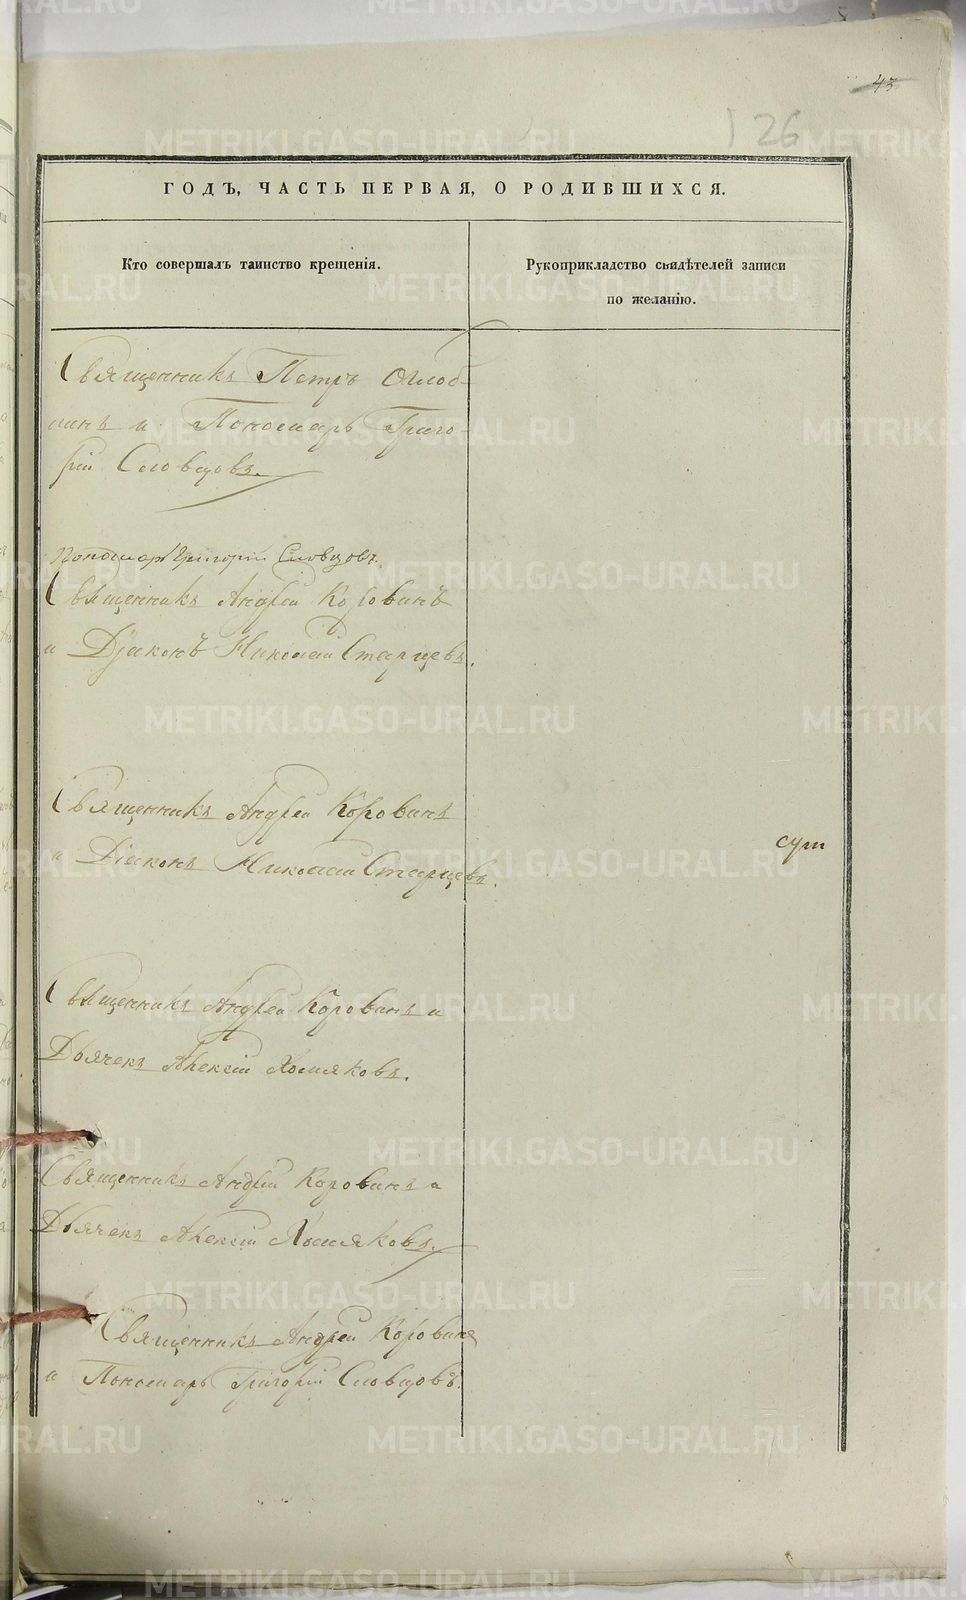 43
126
ГОДЪ, ЧАСТЬ ПЕРВАЯ, О РОДИВШИХСЯ.
Кто совершалъ таинство крещенія.
Рукоприкладство свидѣтелей записи
по желанію.
Священникъ Петръ Оглоб-
линъ и Пономарь Григо-
рій Словцовъ.
Пономарь Григорій Словцовъ.
Священникъ Андрей Коровинъ
и Діаконъ Николай Старцевъ.
Священникъ Андрей Коровинъ
и Діаконъ Николай Старцевъ.
Священникъ Андрей Коровинъ и
Дьячекъ Алексій Хомяковъ.
Священникъ Андрей Коровинъ и
Дьячекъ Алексій Хомяковъ.
Священникъ Андрей Коровинъ
и Пономарь Григорій Словцовъ.
METRIKI.GASO-URAL.RU